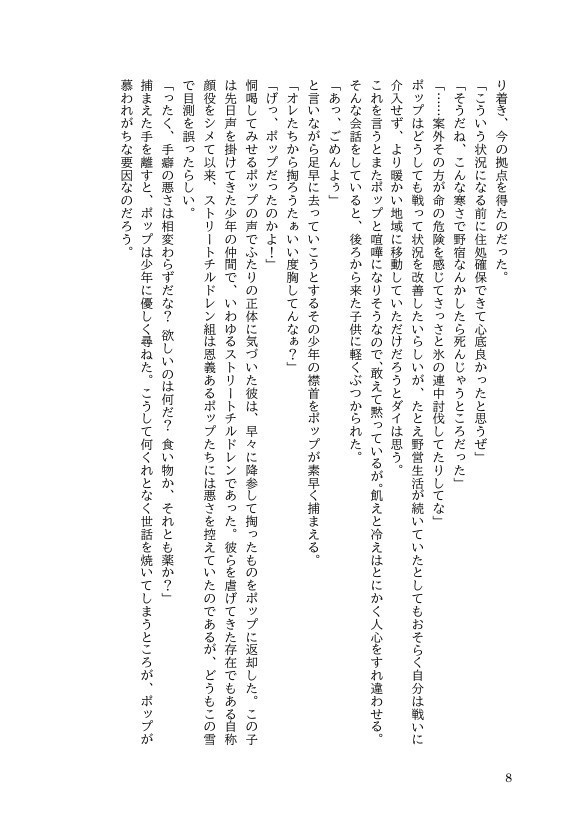 り着き、今の拠点を得たのだった。
「こういう状況になる前に住処確保できて心底良かったと思うぜ」
「そうだね、こんな寒さで野宿なんかしたら死んじゃうところだった」
「……案外その方が命の危険を感じてさっさと氷の連中討伐してたりしてな」
ポップはどうしても戦って状況を改善したいらしいが、たとえ野営生活が続いていたとしてもおそらく自分は戦いに
介入せず、より暖かい地域に移動していただけだろうとダイは思う。
これを言うとまたポップと喧嘩になりそうなので、敢えて黙っているが。飢えと冷えはとにかく人心をすれ違わせる。
そんな会話をしていると、後ろから来た子供に軽くぶつかられた。
「あっ、ごめんよぅ」
と言いながら足早に去っていこうとするその少年の襟首をポップが素早く捕まえる。
「オレたちから掏ろうたぁいい度胸してんなぁ？」
「げっ、ポップだったのかよ！」
恫喝してみせるポップの声でふたりの正体に気づいた彼は、早々に降参して掏ったものをポップに返却した。この子
は先日声を掛けてきた少年の仲間で、いわゆるストリートチルドレンであった。彼らを虐げてきた存在でもある自称
顔役をシメて以来、ストリートチルドレン組は恩義あるポップたちには悪さを控えていたのであるが、どうもこの雪
で目測を誤ったらしい。
「ったく、手癖の悪さは相変わらずだな？　欲しいのは何だ？　食い物か、それとも薬か？」
捕まえた手を離すと、ポップは少年に優しく尋ねた。こうして何くれとなく世話を焼いてしまうところが、ポップが
慕われがちな要因なのだろう。
8